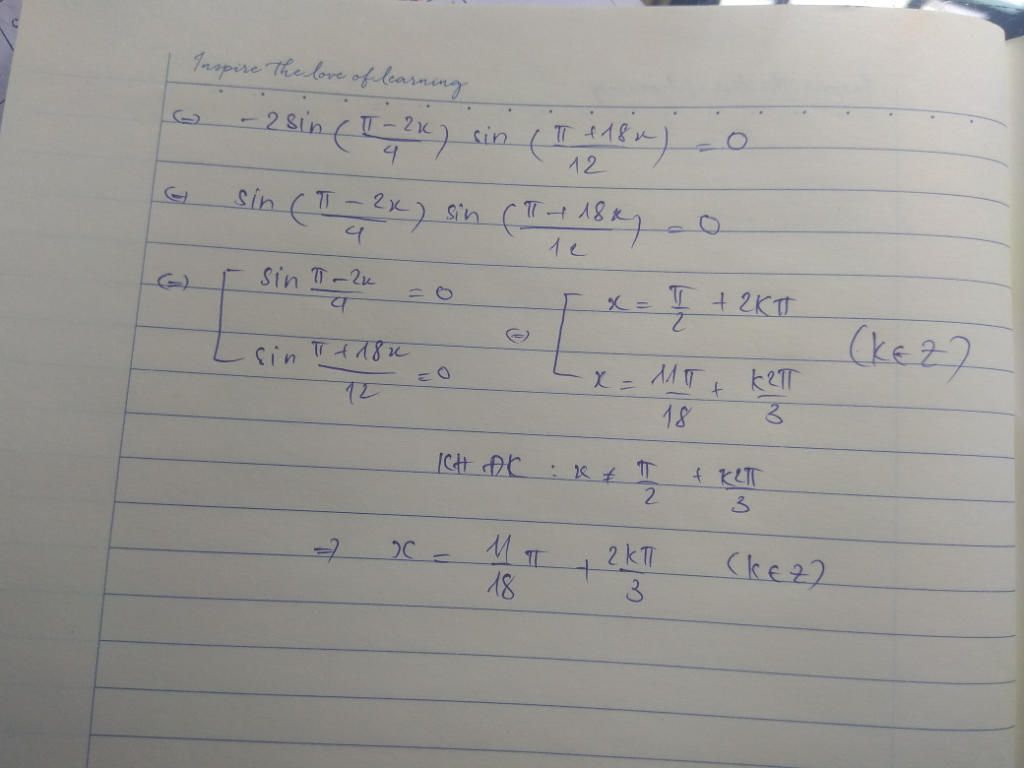 Inspire the love of learning
⇔ -2 sin (π - 2x / 4) sin (π + 18x / 12) = 0
⇔ sin (π - 2x / 4) sin (π + 18x / 12) = 0
⇔ [ sin π - 2x / 4 = 0 ⇔ [ x = π/2 + 2kπ
sin π + 18x / 12 = 0 x = 11π/18 + k2π/3 (k ∈ Z)
KH ĐK : x ≠ π/2 + k2π/3
⇒ x = 11/18 π + 2kπ/3 (k ∈ Z)